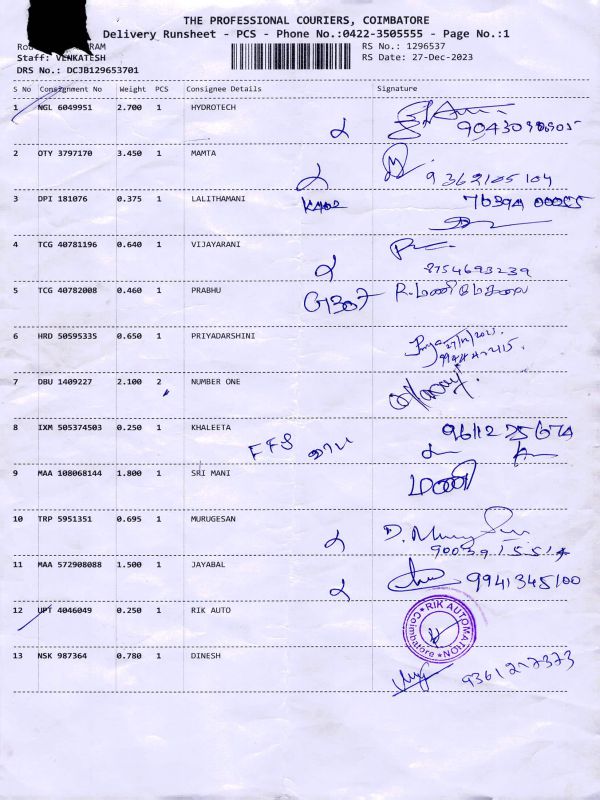 THE PROFESSIONAL COURIERS, COIMBATORE
Delivery Runsheet - PCS - Phone No.:0422-3505555 - Page No.:1
RAM RS No.: 1296537
Staff: VENKATESH RS Date: 27-Dec-2023
DRS No.: DCJB129653701
S No Consignment No Weight PCS Consignee Details Signature
1 NGL 6049951 2.700 1 HYDROTECH
2 OTY 3797170 3.450 1 MAMTA
9362105104
3 DPI 181076 0.375 1 LALITHAMANI
4 TCG 40781196 0.640 1 VIJAYARANI
8754693239
5 TCG 40782008 0.460 1 PRABHU
6 HRD 50595335 0.650 1 PRIYADARSHINI
27/12/2023.
7 DBU 1409227 2.100 2 NUMBER ONE
8 IXM 505374503 0.250 1 KHALEETA
9 MAA 108068144 1.800 1 SRI MANI
மணி
10 TRP 5951351 0.695 1 MURUGESAN
11 MAA 572908088 1.500 1 JAYABAL 9941345100
12 UPT 4046049 0.250 1 RIK AUTO RIK AUTOMATION Coimbatore
13 NSK 987364 0.780 1 DINESH 9361217373